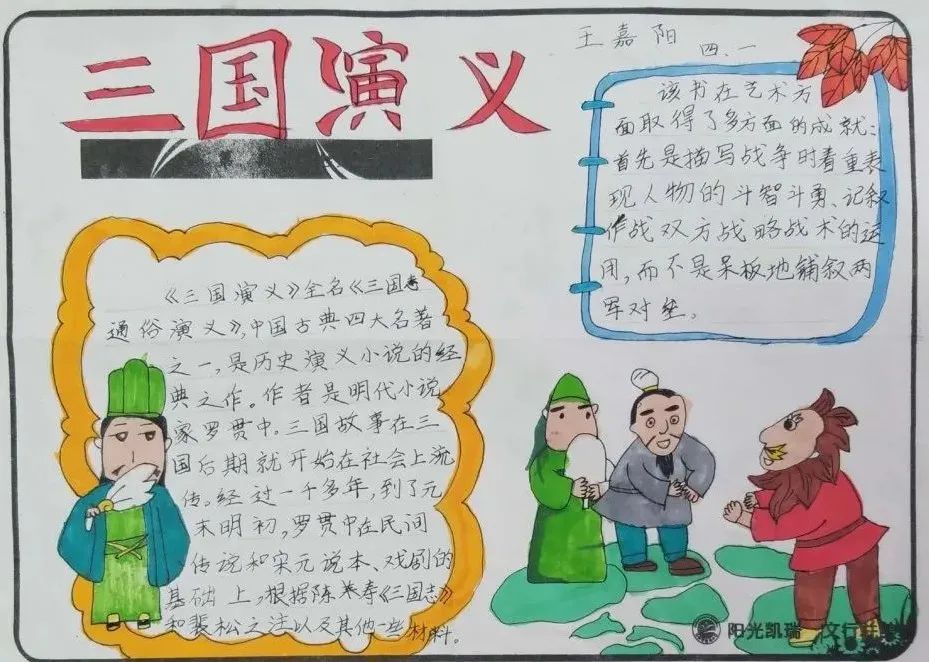 三国演义
王嘉阳
四.一
该书在艺术方
面取得了多方面的成就：
首先是描写战争时着重表
现人物的斗智斗勇、记叙
作战双方战略战术的运
用，而不是呆板地铺叙两
军对垒。
《三国演义》全名《三国志
通俗演义》，中国古典四大名著
之一，是历史演义小说的经
典之作。作者是明代小说
家罗贯中。三国故事在三
国后期就开始在社会上流
传。经过一千多年，到了元
末明初，罗贯中在民间
传说和宋元说本、戏剧的
基础上，根据陈寿《三国志》
和裴松之注以及其他一些材料。
阳光凯瑞